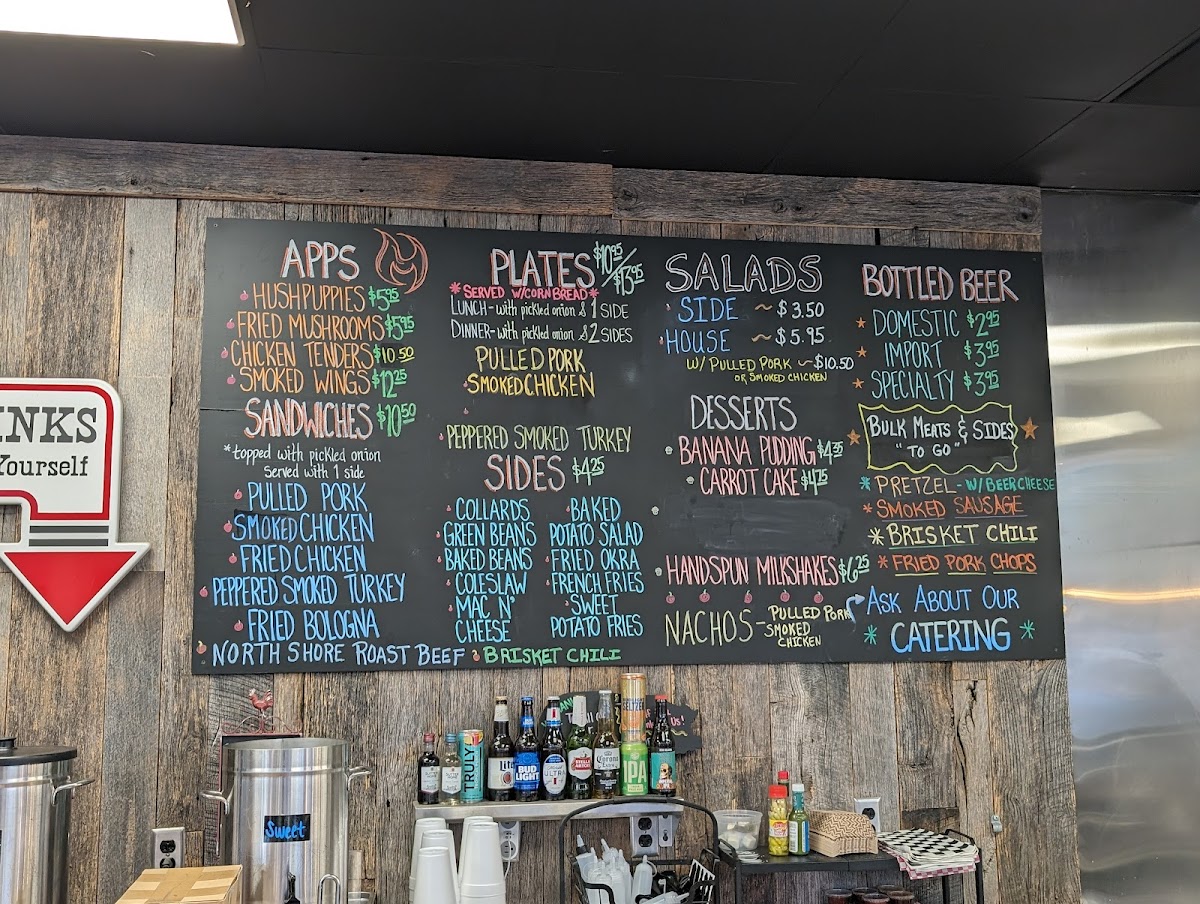 APPS
HUSHPUPPIES $5.95
FRIED MUSHROOMS $5.95
CHICKEN TENDERS $10.50
SMOKED WINGS $12.25
SANDWICHES $10.50
*topped with pickled onion
Served with 1 side
PULLED PORK
SMOKED CHICKEN
FRIED CHICKEN
PEPPERED SMOKED TURKEY
FRIED BOLOGNA
NORTH SHORE ROAST BEEF
PLATES $10.95/$13.95
*SERVED W/CORNBREAD*
LUNCH-with pickled onion & 1 SIDE
DINNER-with pickled onion & 2 SIDES
PULLED PORK
SMOKED CHICKEN
PEPPERED SMOKED TURKEY
SIDES $4.25
COLLARDS
GREEN BEANS
BAKED BEANS
COLESLAW
MAC N'
CHEESE
BAKED
POTATO SALAD
FRIED OKRA
FRENCH FRIES
SWEET
POTATO FRIES
BRISKET CHILI
SALADS
SIDE ~ $3.50
HOUSE ~ $5.95
W/ PULLED PORK ~ $10.50
OR SMOKED CHICKEN
DESSERTS
BANANA PUDDING
CARROT CAKE $4.25
HANDSPUN MILKSHAKES $6.25
NACHOS - PULLED PORK
SMOKED
CHICKEN
BOTTLED BEER
DOMESTIC $2.95
IMPORT $3.95
SPECIALTY $3.95
BULK MEATS & SIDES
"TO GO"
*PRETZEL - W/ BEER CHEESE
*SMOKED SAUSAGE
*BRISKET CHILI
*FRIED PORK CHOPS
ASK ABOUT OUR
*CATERING*
INKS
Yourself
Sweet
TRULY
Lite
BUD
LIGHT
ULTRA
STELLA
ARTOIS
Corona
SELTZER
IPA